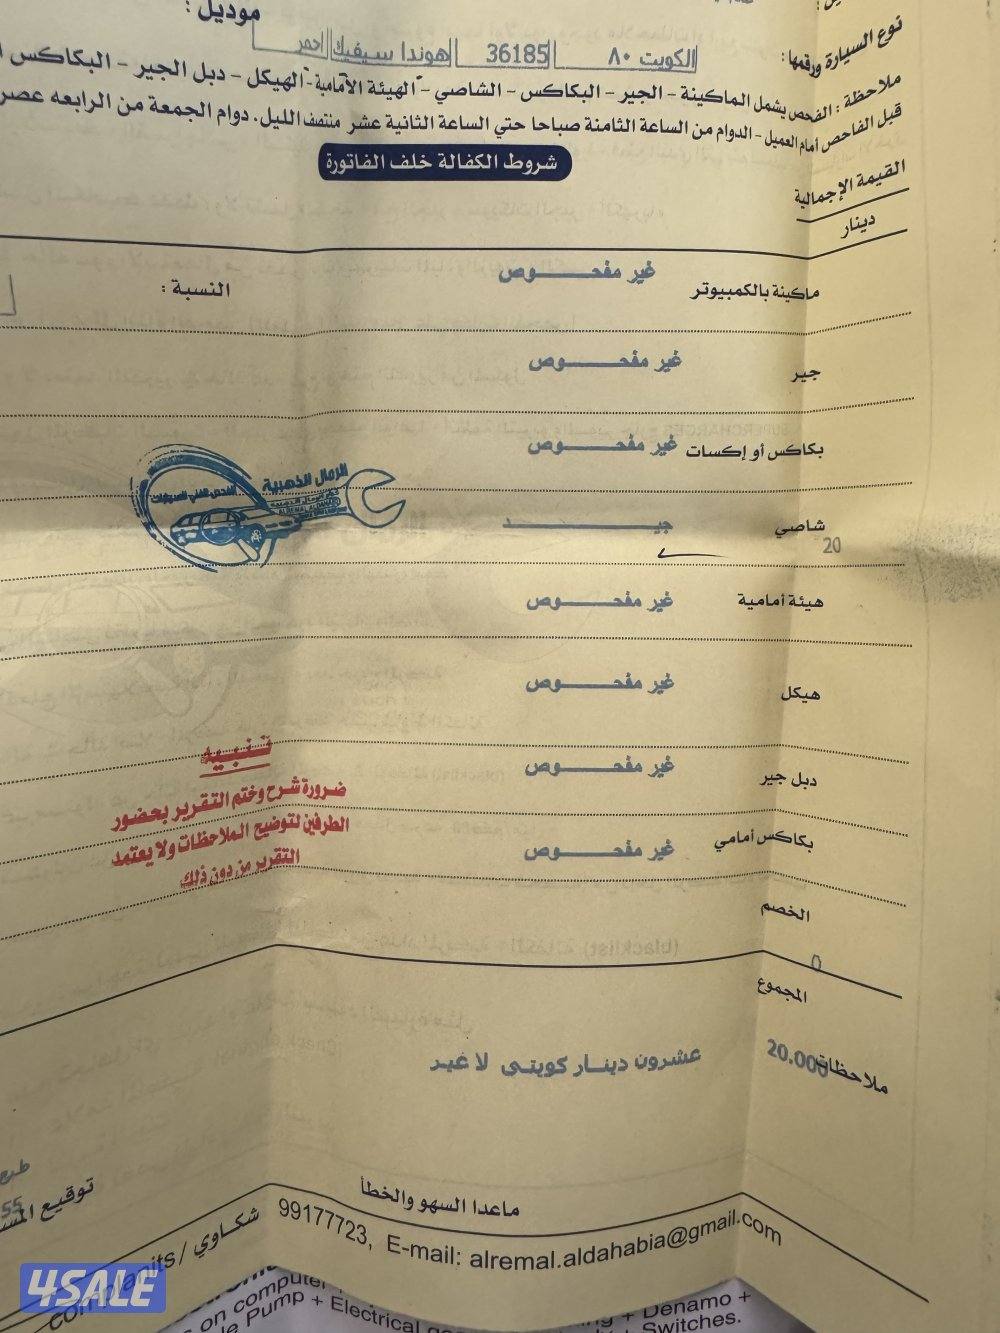 موديل :
نوع السيارة ورقمها : الكويت ٨٠ 36185 هوندا سيفيك احمر
ملاحظة : الفحص يشمل الماكينة - الجير - البكاكس - الشاصي - الهيئة الأمامية - الهيكل - دبل الجير - البكاكس
قبل الفاحص أمام العميل - الدوام من الساعة الثامنة صباحا حتي الساعة الثانية عشر منتصف الليل. دوام الجمعة من الرابعه عصر
شروط الكفالة خلف الفاتورة
القيمة الإجمالية
دينار
ماكينة بالكمبيوتر غير مفحـــوص النسبة :
جير غير مفحـــوص
بكاكس أو إكسات غير مفحـــوص
الرمال الذهبية
الفحص الفني للسيارات
شاصي جيـــــــد
20
هيئة أمامية غير مفحـــوص
هيكل غير مفحـــوص
تنبيه
دبل جير غير مفحـــوص
ضرورة شرح وختم التقرير بحضور
الطرفين لتوضيح الملاحظات ولا يعتمد
التقرير من دون ذلك
بكاكس أمامي غير مفحـــوص
الخصم
0
المجموع
20.000
ملاحظات عشرون دينـار كويتى لا غيـر
ماعدا السهو والخطأ
توقيع
55
complanits / شكاوي 99177723, E-mail: alremal.aldahabia@gmail.com
4SALE
on computer
Denamo +
Pump + Electrical
+ Switches.